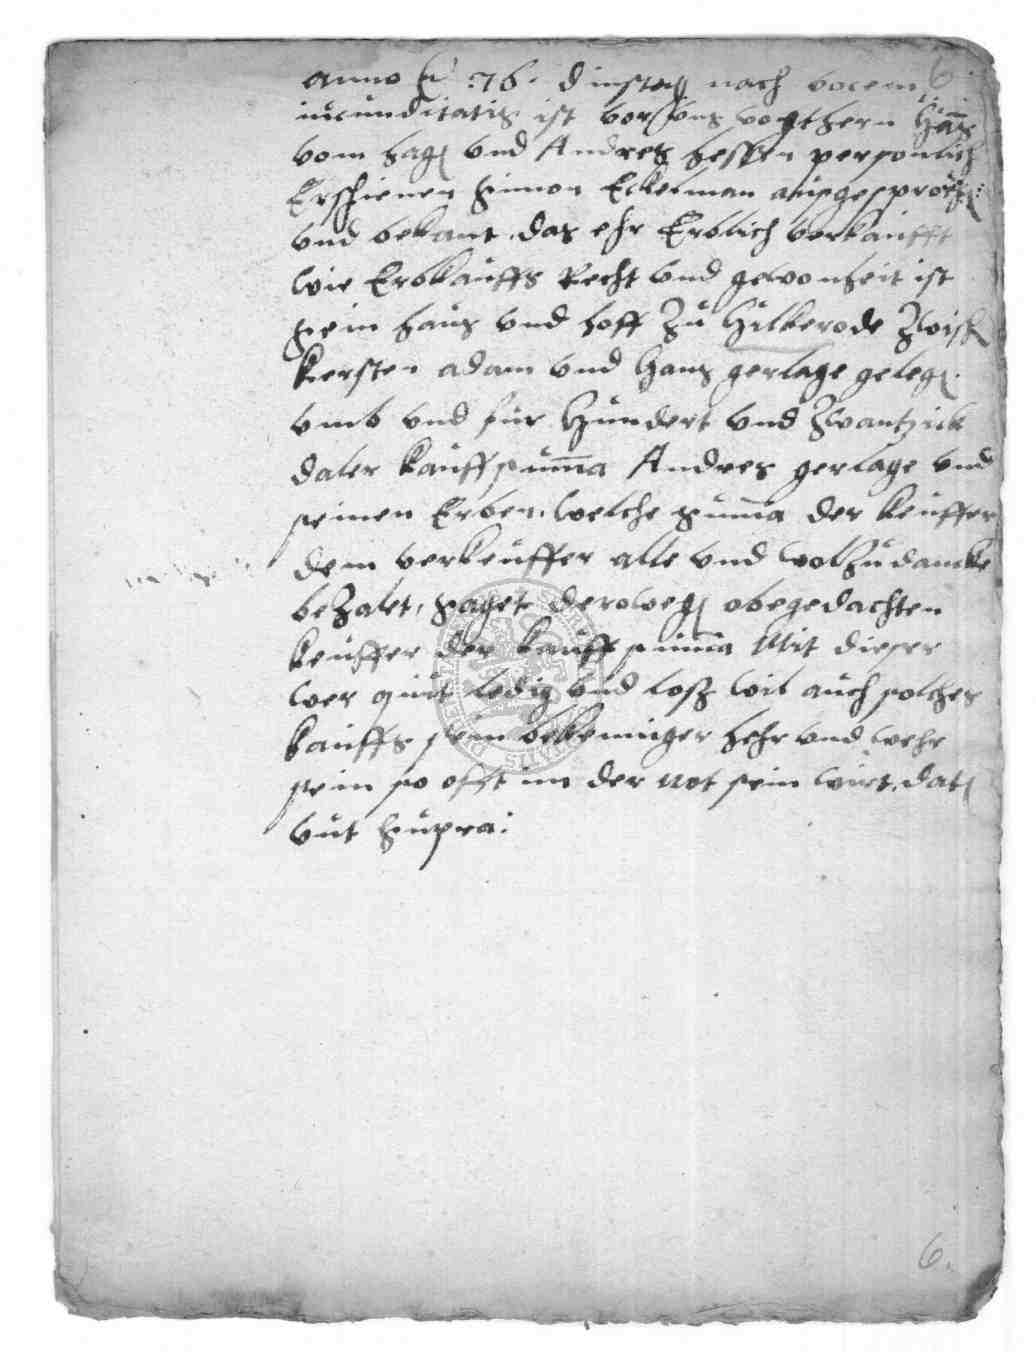 anno :76. dinstag nach vocem 6.
iucunditatis ist vor uns vogthern Hans
vom hag und Andres hessen personlich
Erschienen Simon Eckelman ausgesproch:
und bekant, das ehr Erblich verkaufft
wie Erbkauffs Recht und gewonheit ist
sein haus und hoff zu Hilkerode zwisch
Kersten adam und Hans gerlage geleg.
umb und fur Hundert und zwantzick
daler kauffsumma Andres gerlage und
seinen Erben, welche summa der keuffer
dem verkeuffer alle und wolzudancke
bezalet, saget derweg obegedachten
keuffer der kauffsumma Mit dieser
wer quit ledig und losz wil auch solches
kauffs sein bekenniger hehr und wehr
sein so offt im der not sein wirt. dat
uut supra:
6.